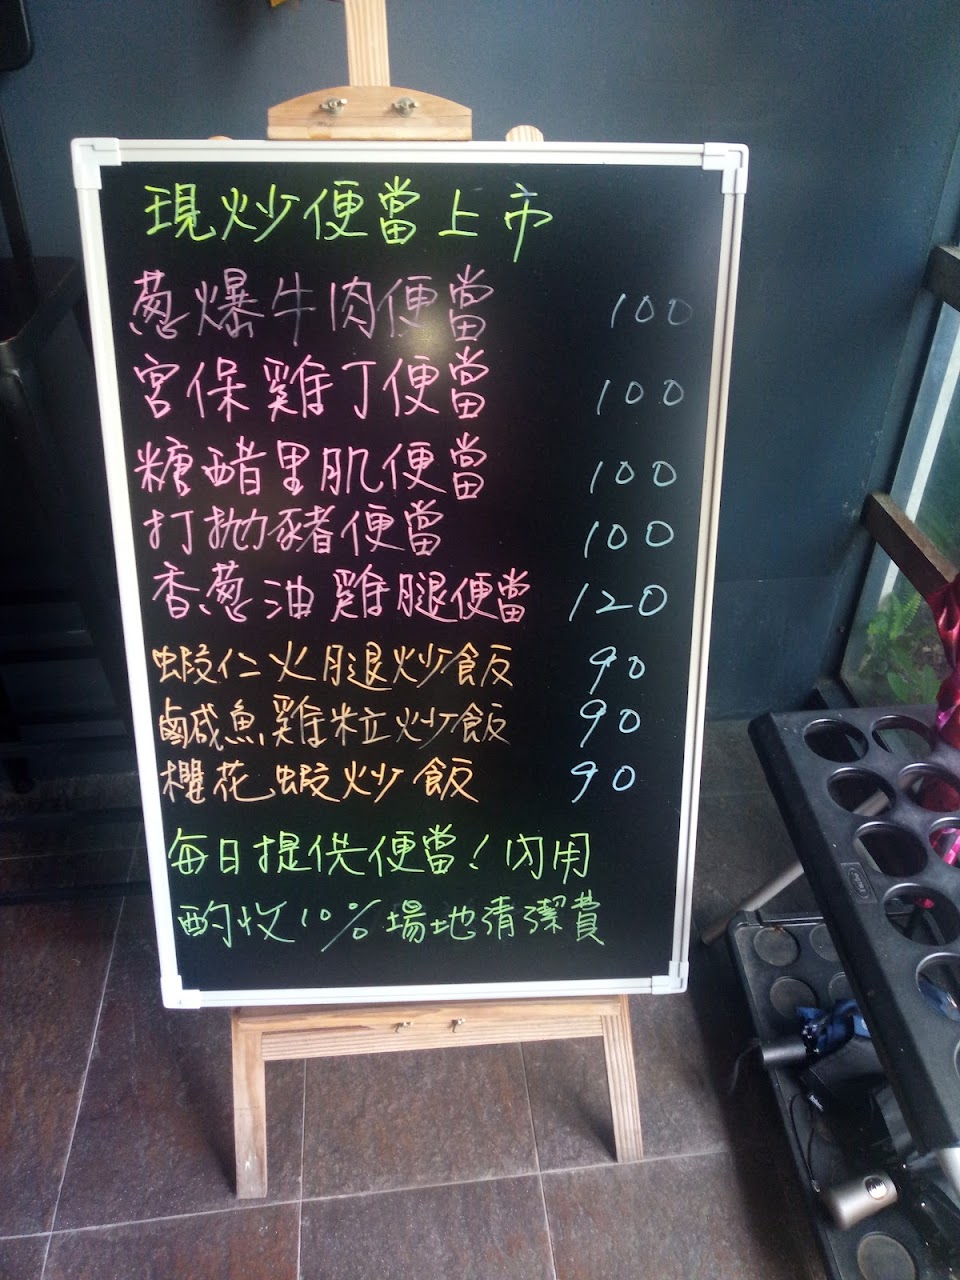 現炒便當上市
蔥爆牛肉便當 100
宮保雞丁便當 100
糖醋里肌便當 100
打拋豬便當 100
香蔥油雞腿便當 120
蝦仁火腿炒飯 90
鹹魚雞粒炒飯 90
櫻花蝦炒飯 90
每日提供便當!內用
酌收10%場地清潔費